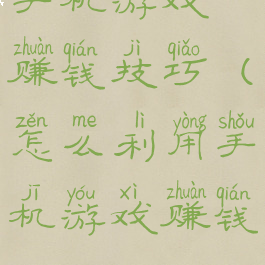 手机游戏
zhuàn qián jì qiǎo
赚钱技巧（
zěn me lì yòng shǒu
怎么利用手
jī yóu xì zhuàn qián
机游戏赚钱